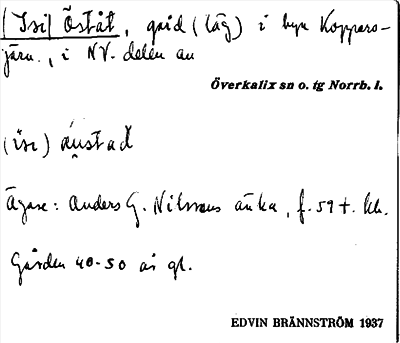 (Isi) Öståt, grid (låg) i byn Koppars-
järn., i NV. delen av
Överkalix sn o. tg Norrb. l.
(isi) austad
Ägare: Anders G. Nilssons änka, f. 59 t. kh.
Gården 40-50 år gl.
EDVIN BRÄNNSTRÖM 1937